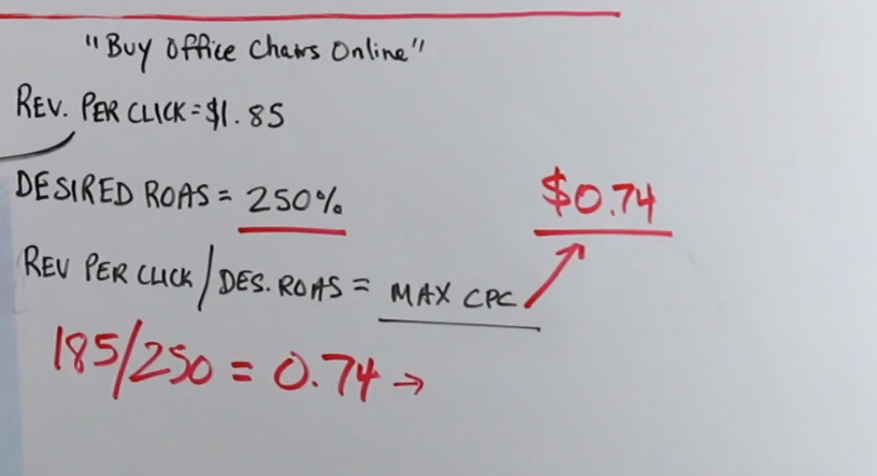 "Buy Office Chairs Online"
REV. PER CLICK = $1.85
DESIRED ROAS = 250%
$0.74
REV PER CLICK / DES. ROAS = MAX CPC
185/250 = 0.74 →